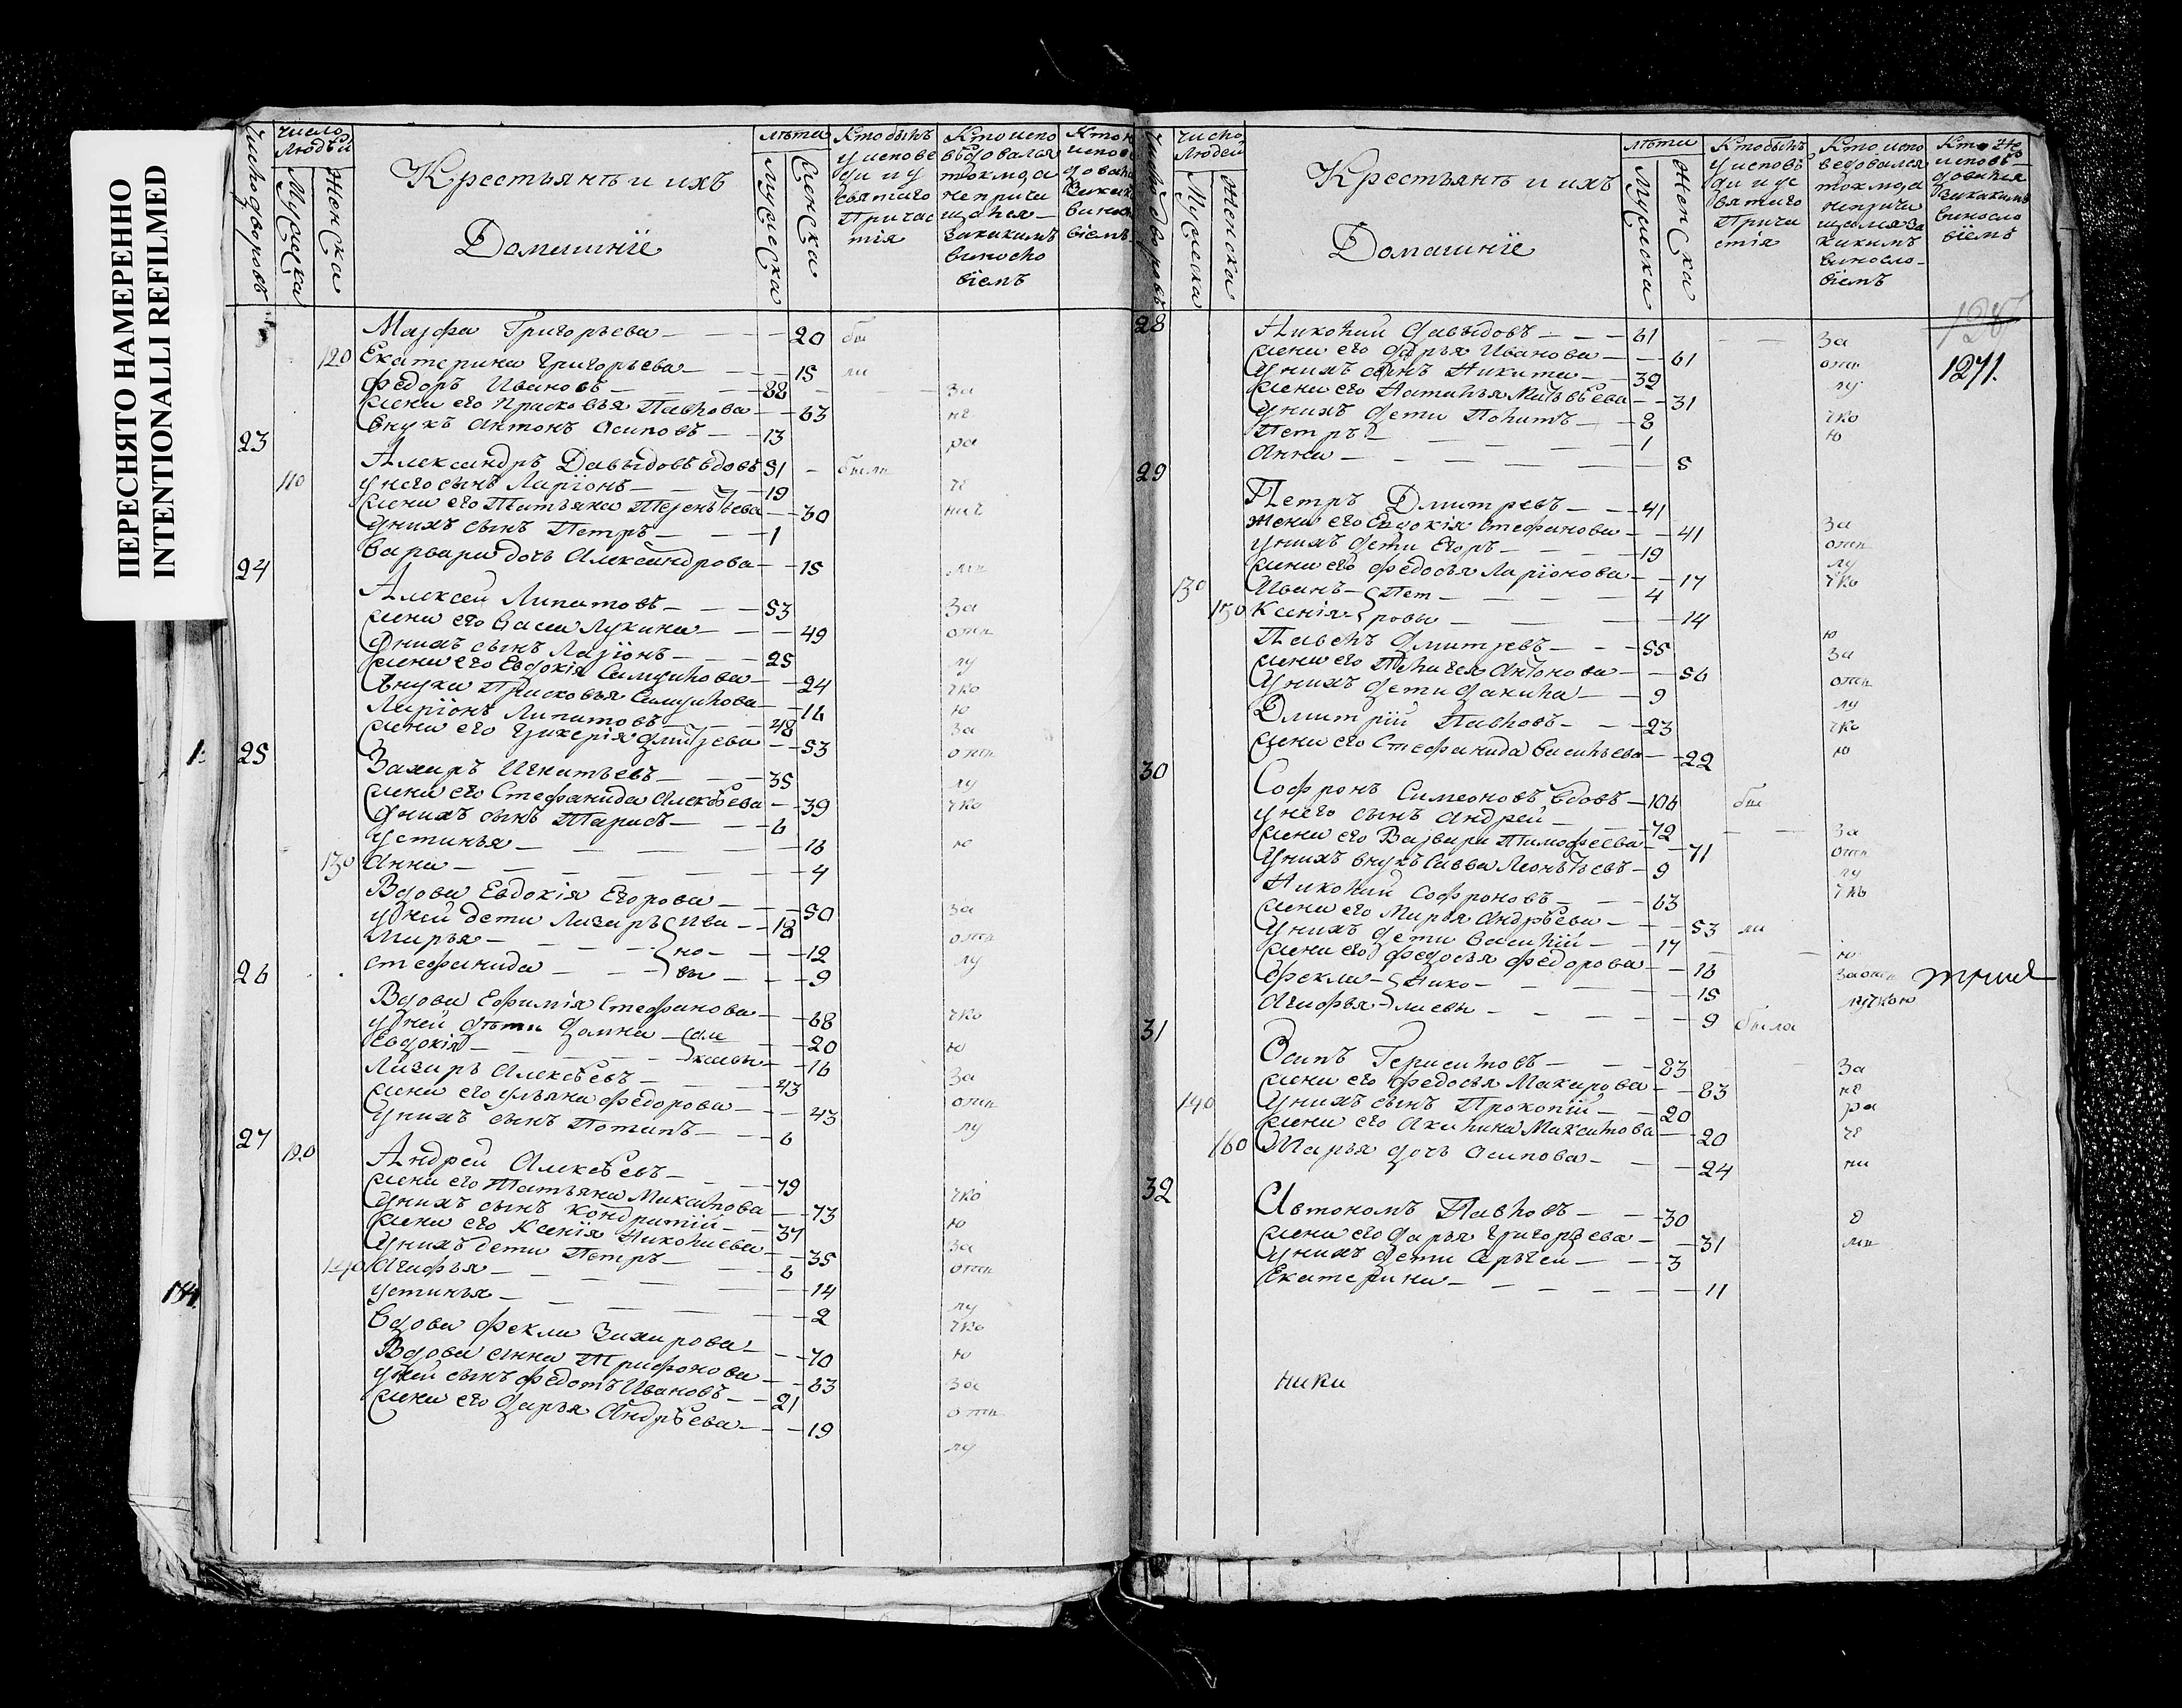 ПЕРЕСНЯТО НАМЕРЕННО
INTENTIONALLI REFILMED
Число дворовъ
Число людей
Мужеска
Женска
Крестьянѣ и ихъ
Домашнїе
лѣта
Мужеска
Женска
Кто былъ у исповеди и у святаго Причастія
Кто исповѣдовался токмо а непричащался за какимъ винословїемъ
Марфа Григорьева 20 бы
120 Екатерина Григорьева 15 ли
Федоръ Ивановъ 88 за
жена его Прасковья Павлова 63 не
внукъ Антонъ Осиповъ 13 ра
23
Александръ Давыдовъ вдовъ 51 были
110 у него сынъ Ларїонъ 19 че
жена его Татьяна Терентьева 30 ниѣ
у нихъ сынъ Петръ 1
Варвара дочь Александрова 15
24
Алексей Липатовъ 53 За
жена его Васса Лукина 49 отл
у нихъ сынъ Ларїонъ 25 лу
жена его Евдокія Самуилова 24 чко
внука Прасковья Самуилова 16 ю
Ларїонъ Липатовъ 48 за
жена его Гликерія Дмитрева 53 отл
1: 25
Захаръ Игнатьевъ 35 лу
жена его Стефанида Алексѣева 39 чко
у нихъ сынъ Тарасъ 6
Устинья 16 ю
130 Анна 4
Вдова Евдокія Егорова 50 за
у ней дети Лазарь Ива 18
Марья но 12 отл
Стефанида вы 9 лу
26
Вдова Ефимія Стефанова 68 чко
у ней дѣти Домна Але 20
Евдокія ксѣевы 16 ю
Лазарь Алексѣевъ 43 За
жена его Ульяна Федорова 43 отл
у нихъ сынъ Потапъ 6 лу
27 120
Андрей Алексѣевъ 79
жена его Татьяна Максимова 73 чко
у нихъ сынъ Кондратій 37 ю
жена его Ксенїя Николаева 35 За
у нихъ дети Петръ 6 отл
140 Агафья 14
184
Устинья 2 лу
Вдова Фекла Захарова 70 чко
Вдова Анна Трифонова 63 ю
у ней сынъ Федотъ Ивановъ 21 За
жена его Дарья Андрѣева 19 отл
лу
Число дворовъ
Число людей
Мужеска
Женска
Крестьянѣ и ихъ
Домашнїе
лѣта
Мужеска
Женска
Кто былъ у исповѣди и у святаго Причастія
Кто исповедовался токмо а непричащался за какимъ винословїемъ
Кто не исповѣдовался за какимъ винословїемъ
128
1271.
28
Николай Давыдовъ 61 За
жена его Дарья Иванова 61 отл
у нихъ сынъ Никита 32 лу
жена его Наталья Матвѣева 31 чко
у нихъ дети Политъ 8 ю
Петръ 1
Анна 5
29
Петръ Дмитревъ 41
жена его Евдокія Стефанова 41 За
у нихъ дети Егоръ 19 отл
жена его Федосья Ларїонова 17 лу
130 Иванъ Пет 4 чко
150 Ксенія ровы 14
Павелъ Дмитревъ 55 ю
жена его Пелагея Антонова 56 За
у нихъ дети Данила 9 отл
Дмитрїй Павловъ 23 лу
жена его Стефанида Васильева 22 чко
ю
30
Софронъ Симеоновъ вдовъ 106 бы
у него сынъ Андрей 72 За
жена его Варвара Тимофеева 71 отл
у нихъ внукъ Савва Леонтьевъ 9 лу
Николай Софроновъ 63 чко
жена его Марья Андрѣева 53 ли
у нихъ дети Василїй 17 ю
жена его Федосья Федорова 18 За отл
Фекла Нико 15 лучкою
Агафья лаевы 9 была
31
Осипъ Герасимовъ 83 За
жена его Федосья Макарова 83 не
140 у нихъ сынъ Прокопїй 20 ра
жена его Акилина Максимова 20 че
160 Марья дочь Осипова 24 ни
32
Автономъ Павловъ 30 е
жена его Дарья Григорьева 31 мъ
у нихъ дети Сергей 3
Екатерина 11
ники